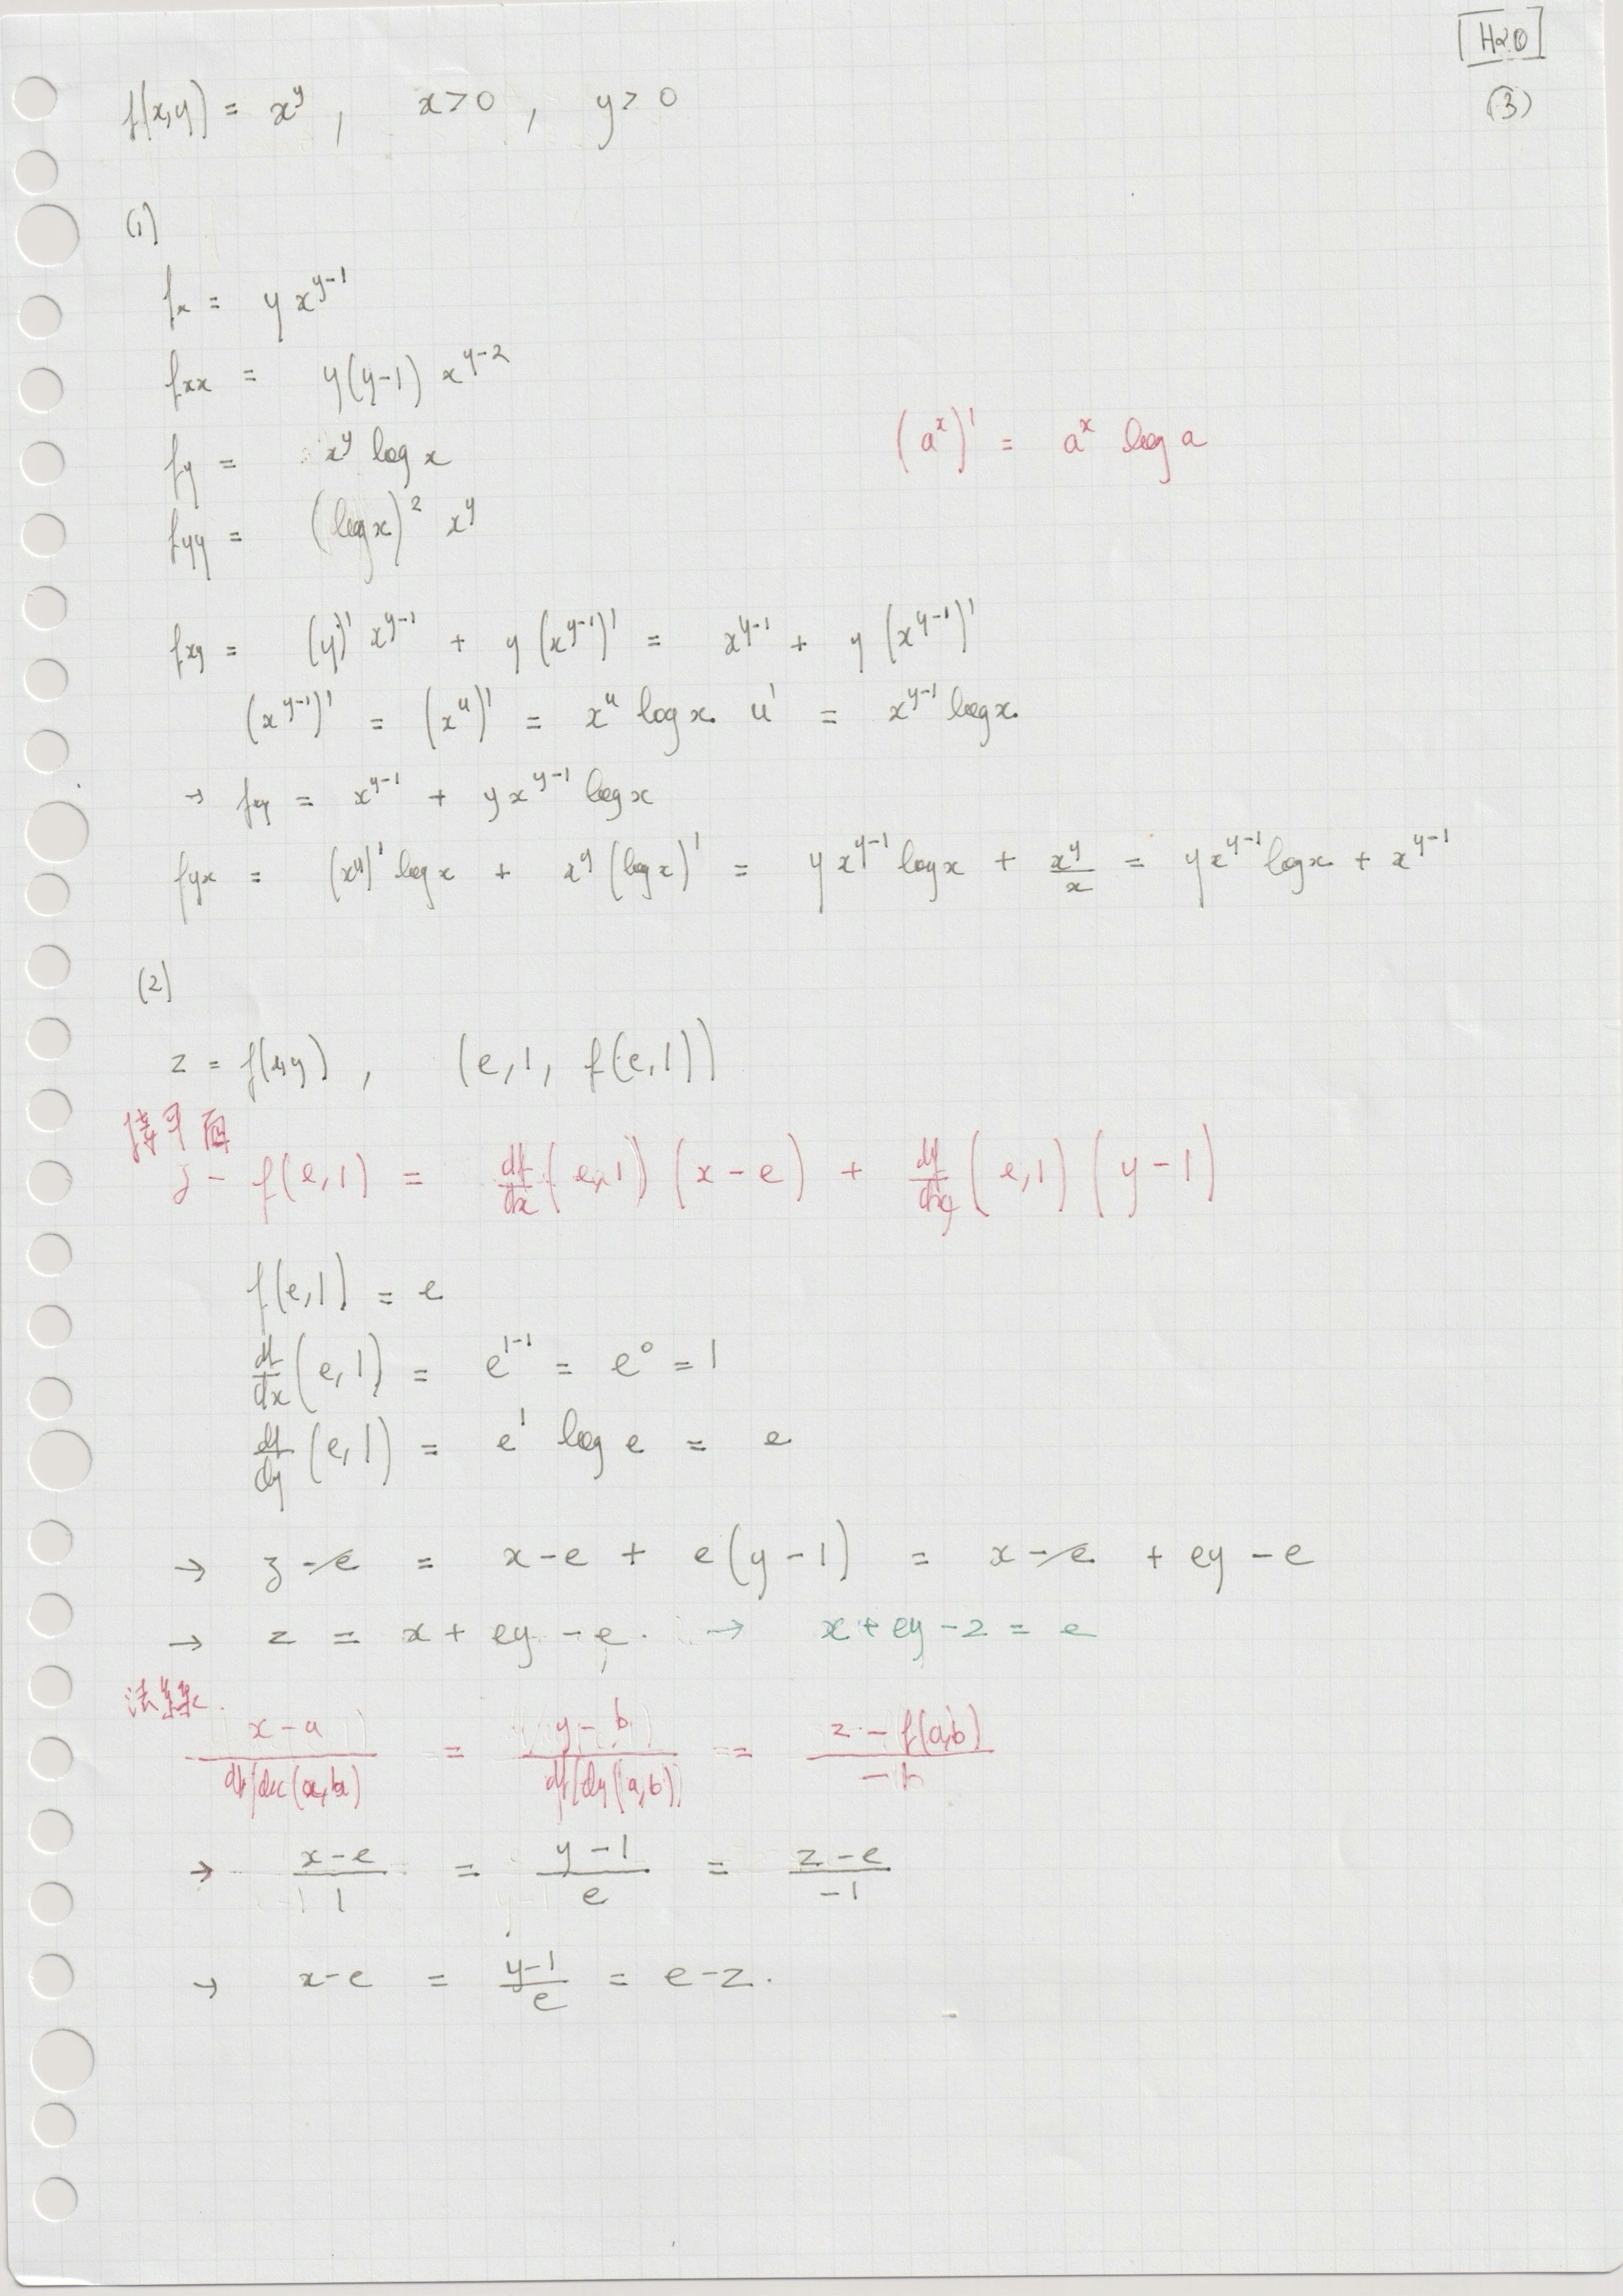 H20
(3)
f(x,y) = x^y , x>0 , y>0
(1)
fx = y x^{y-1}
fxx = y(y-1) x^{y-2}
fy = x^y log x
(a^x)' = a^x log a
fyy = (log x)^2 x^y
fxy = (y)' x^{y-1} + y (x^{y-1})' = x^{y-1} + y (x^{y-1})'
(x^{y-1})' = (x^u)' = x^u log x. u' = x^{y-1} log x.
→ fxy = x^{y-1} + y x^{y-1} log x
fyx = (x^y)' log x + x^y (log x)' = y x^{y-1} log x + x^y/x = y x^{y-1} log x + x^{y-1}
(2)
z = f(x,y) , (e,1, f(e,1))
接平面
z - f(e,1) = df/dx (e,1) (x-e) + df/dy (e,1) (y-1)
f(e,1) = e
df/dx (e,1) = e^{1-1} = e^0 = 1
df/dy (e,1) = e^1 log e = e
→ z - e = x-e + e(y-1) = x - e + ey - e
→ z = x + ey - e. → x + ey - z = e
法線
(x-a)/(df/dx(a,b)) = (y-b)/(df/dy(a,b)) = (z-f(a,b))/-1
→ (x-e)/1 = (y-1)/e = (z-e)/-1
→ x-e = (y-1)/e = e-z.